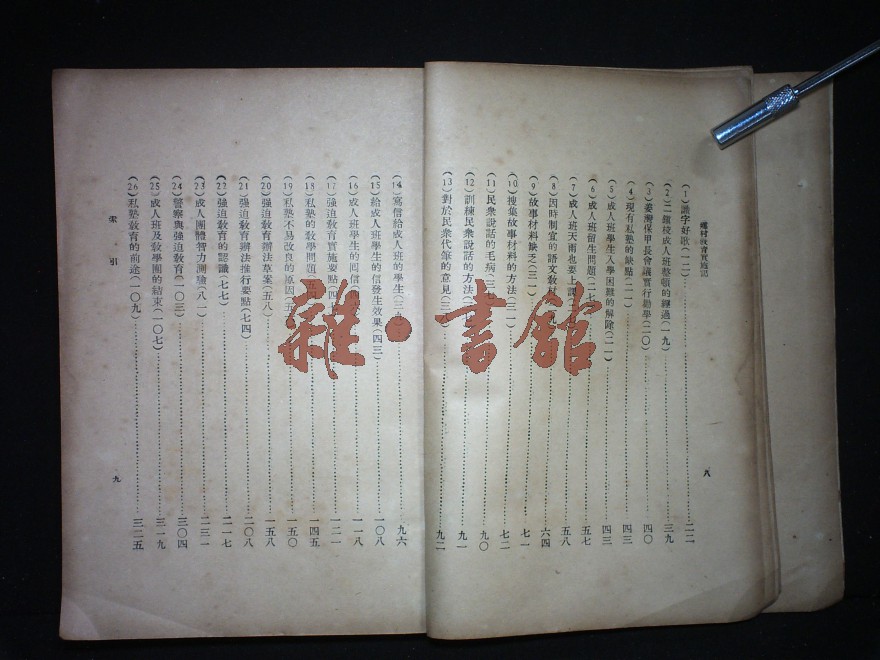 鄉村教育實施記
八
(1)識字好歌(一二)……二二
(2)二組後成人班整頓的經過(一九)……三九
(3)姜灣保甲長會議實行勸學(二〇)……四〇
(4)現有私塾的缺點(二一)……四三
(5)成人班學生入學困難的解除(二一)……四三
(6)成人班留生問題(二七)……五七
(7)成人班天雨也要上課……五八
(8)因時制宜的語文教材……六四
(9)故事材料缺乏(三一)……七一
(10)搜集故事材料的方法(三一)……七二
(11)民衆說話的毛病(三)……九〇
(12)訓練民衆說話的方法(三)……九一
(13)對於民衆代筆的意見(三)……九二
(14)寫信給成人班的學生(三)……九六
(15)給成人班學生的信發生效果(四三)……一〇八
(16)成人班學生的回信(四)……一一八
(17)強迫教育實施要點(四)……一二一
(18)私塾的教學問題(五四)……一四五
(19)私塾不易改良的原因(五)……一五〇
(20)強迫教育辦法草案(五八)……一五八
(21)強迫教育辦法推行要點(七四)……二〇八
(22)強迫教育的認識(七七)……二一七
(23)成人團體智力測驗(八一)……二三一
(24)警察與強迫教育(一〇三)……三〇四
(25)成人班及教學團的結束(一〇七)……三一九
(26)私塾教育的前途(一〇九)……三二五
索引
九
雜·書館